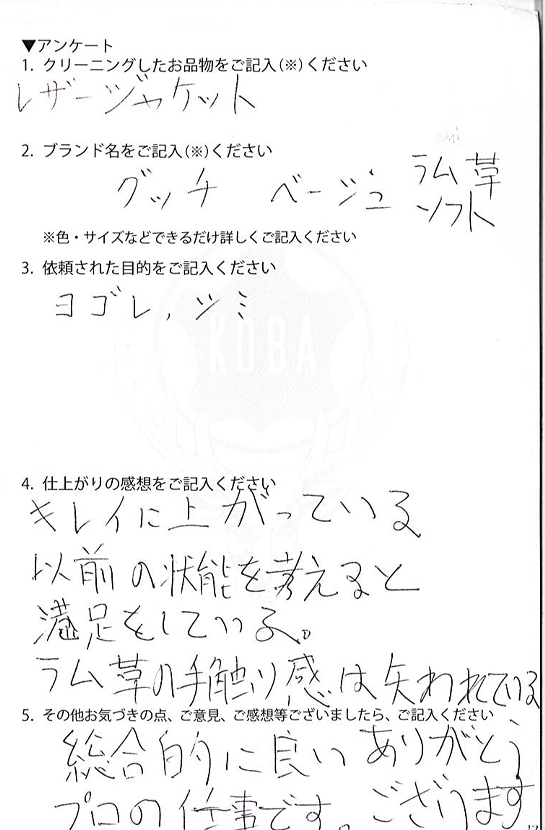 ▼アンケート
1. クリーニングしたお品物をご記入(※)ください
レザージャケット
2. ブランド名をご記入(※)ください
グッチ ベージュ ラム草
ソフト
※色・サイズなどできるだけ詳しくご記入ください
3. 依頼された目的をご記入ください
ヨゴレ,ツミ
KOBA
4. 仕上がりの感想をご記入ください
キレイに上がっている
以前の状能を考えると
満足をしている。
ラム草の手触り感は失われている
5. その他お気づきの点、ご意見、ご感想等ございましたら、ご記入ください
総合的に良い ありがとう
プロの仕事です。ございます